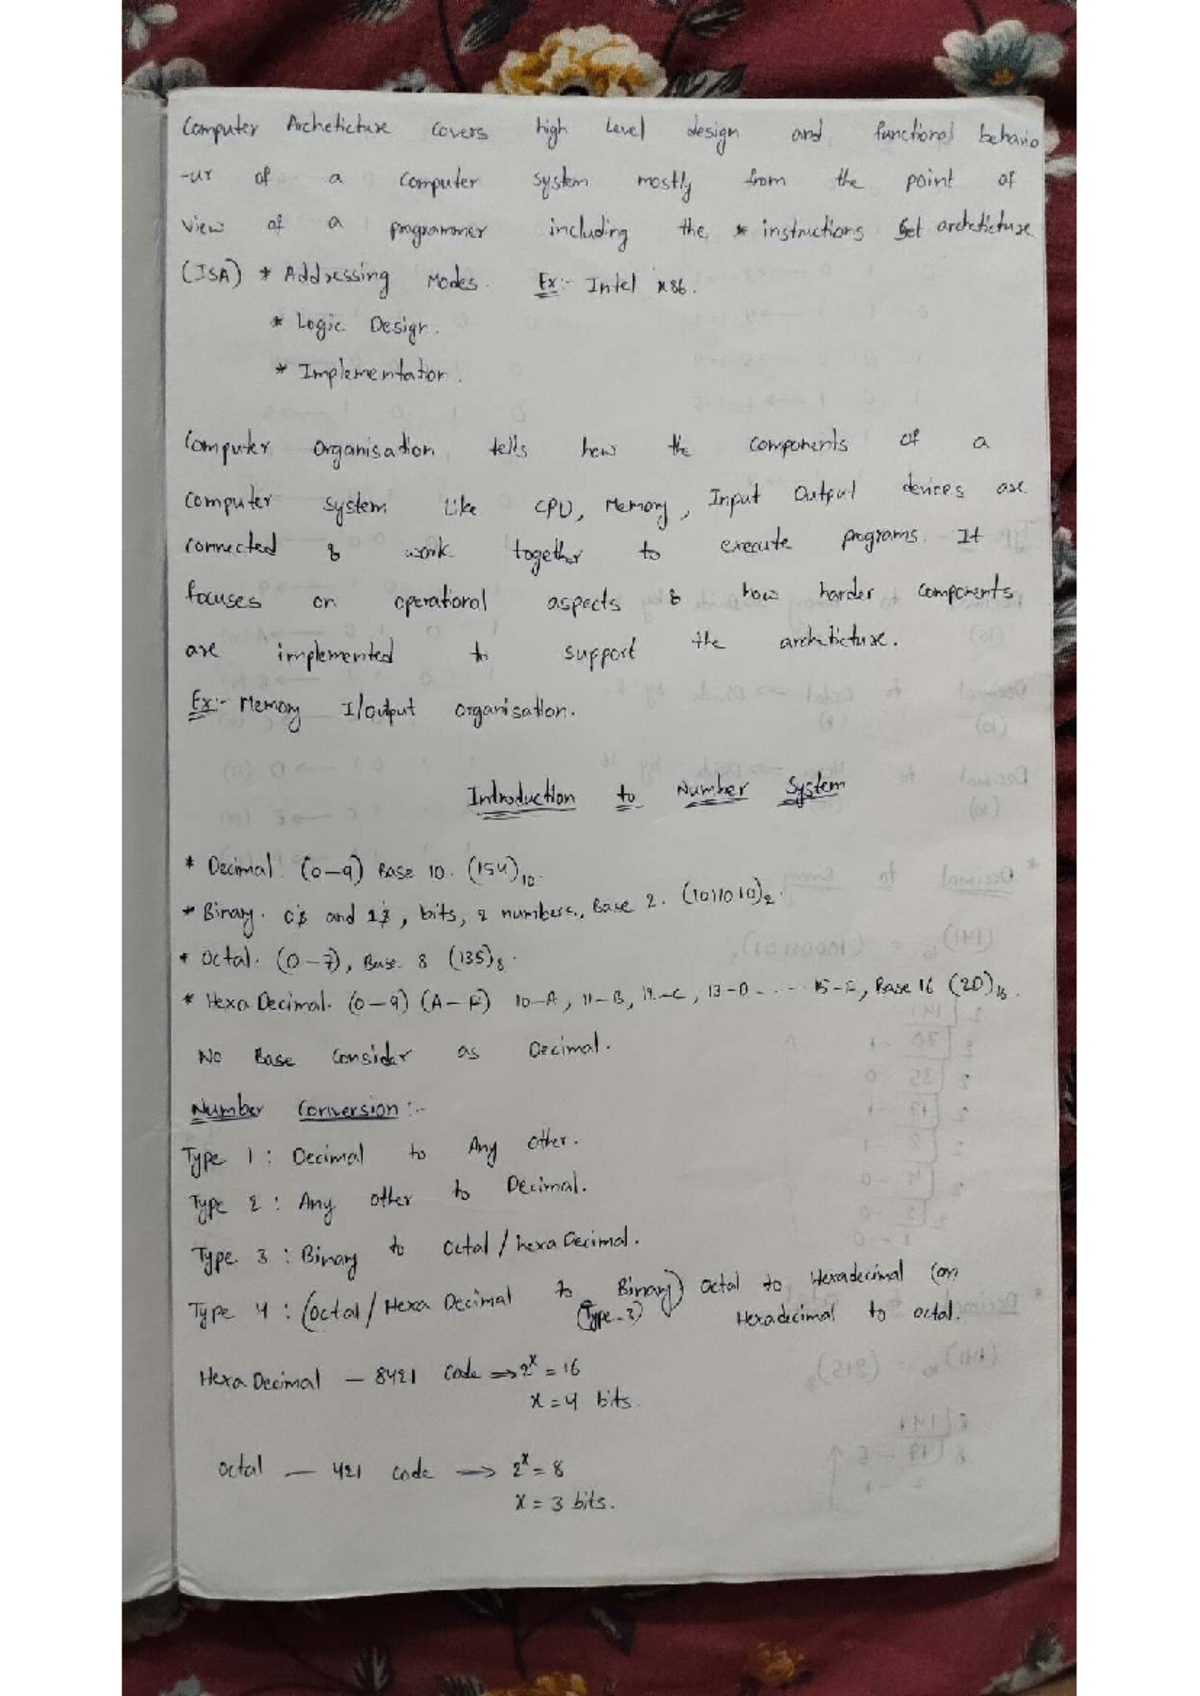 Computer Archeticture covers high level design and functional behavio
-ur of a computer system mostly from the point of
view of a programmer including the * instructions Set archeticture
(ISA) * Addressing Modes. Ex:- Intel x86.
* Logic Design.
* Implementation.
Computer Organisation tells how the components of a
computer system like CPU, Memory, Input Output devices are
connected & work together to execute programs. It
focuses on operational aspects & how harder components
are implemented to support the archeticture.
Ex:- Memory I/output organisation.
Introduction to Number System
* Decimal. (0-9) Base 10. (154)10.
* Binary. 0's and 1's, bits, 2 numbers., Base 2. (1011010)2.
* Octal. (0-7), Base 8 (135)8.
* Hexa Decimal. (0-9) (A-F) 10-A, 11-B, 12-C, 13-D - - - - 15-F, Base 16 (2D)16.
No Base Consider as Decimal.
Number Conversion :-
Type 1 : Decimal to Any other.
Type 2 : Any other to Decimal.
Type 3 : Binary to Octal / hexa Decimal.
Type 4 : (Octal / Hexa Decimal to Binary) Octal to Hexadecimal (or)
(Type-3) Hexadecimal to octal.
Hexa Decimal - 8421 code => 2^x = 16
x = 4 bits.
Octal - 421 code -> 2^x = 8
x = 3 bits.